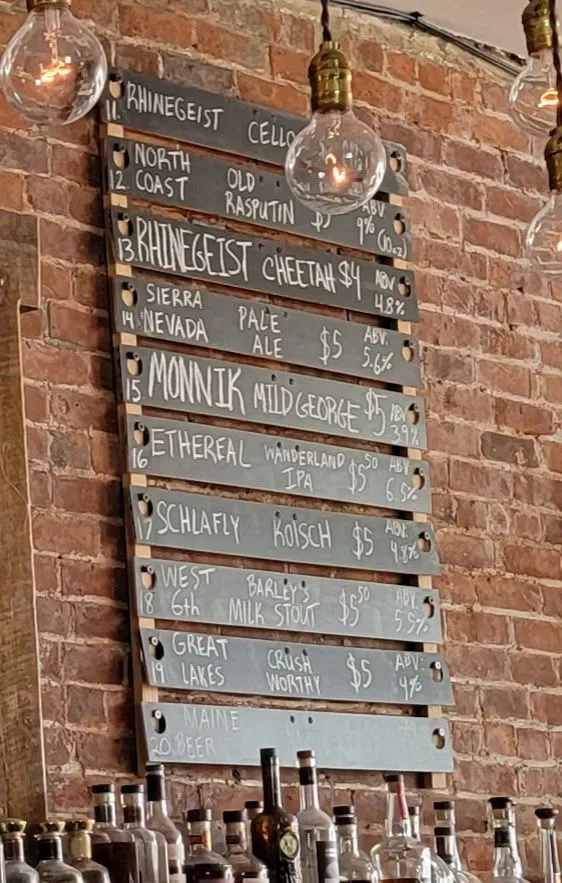 11. RHINEGEIST CELLO
12. NORTH COAST OLD RASPUTIN $5 ABV 9% (10oz)
13. RHINEGEIST CHEETAH $4 ABV 4.8%
14. SIERRA NEVADA PALE ALE $5 ABV: 5.6%
15 MONNIK MILD GEORGE $5 ABV 3.9%
16 ETHEREAL WANDERLAND IPA $5 50 ABV 6.5%
17 SCHLAFLY KOISCH $5 ABV: 4.8%
18 WEST 6th BARLEY'S MILK STOUT $5 50 ABV: 5.5%
19 GREAT LAKES CRUSH WORTHY $5 ABV: 4%
20 MAINE BEER